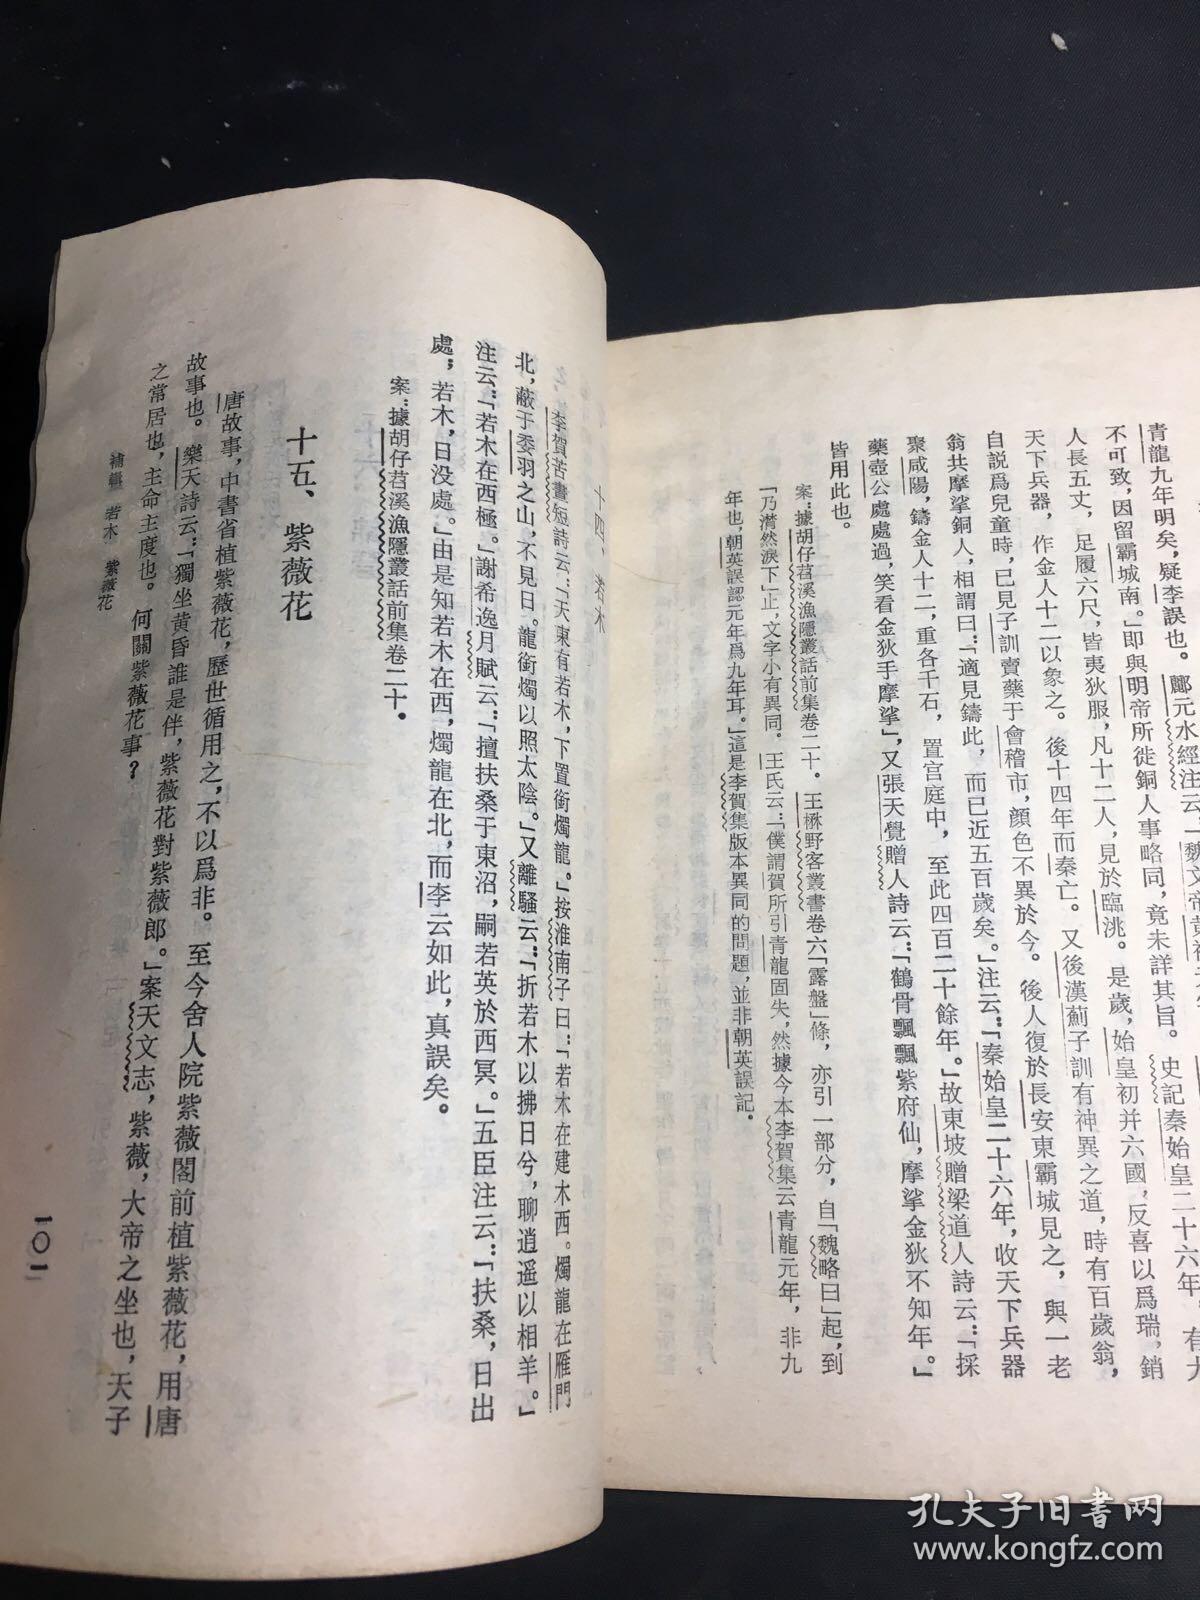 青龍九年明矣，疑李誤也。酈元水經注云：「魏文帝黃初元
不可致，因留霸城南。」即與明帝所徙銅人事略同，竟未詳其旨。史記秦始皇二十六年，有大
人長五丈，足履六尺，皆夷狄服，凡十二人，見於臨洮。是歲，始皇初并六國，反喜以爲瑞，銷
天下兵器，作金人十二以象之。後十四年而秦亡。又後漢薊子訓有神異之道，時有百歲翁，
自説爲兒童時，已見子訓賣藥于會稽市，顔色不異於今。後人復於長安東霸城見之，與一老
翁共摩挲銅人，相謂曰：「適見鑄此，而已近五百歲矣。」注云：「秦始皇二十六年，收天下兵器
聚咸陽，鑄金人十二，重各千石，置宫庭中，至此四百二十餘年。」故東坡贈梁道人詩云：「採
藥壺公處處過，笑看金狄手摩挲」，又張天覺贈人詩云：「鶴骨飄飄紫府仙，摩挲金狄不知年。」
皆用此也。
案：據胡仔苕溪漁隱叢話前集卷二十。王楙野客叢書卷六「露盤」條，亦引一部分，自「魏略曰」起，到
「乃潸然淚下」止，文字小有異同。王氏云：「僕謂賀所引青龍固失，然據今本李賀集云青龍元年，非九
年也，朝英誤認元年爲九年耳。」這是李賀集版本異同的問題，並非朝英誤記。
十四、若木
李賀苦晝短詩云：「天東有若木，下置銜燭龍。」按淮南子曰：「若木在建木西。燭龍在雁門
北，蔽于委羽之山，不見日。龍銜燭以照太陰。」又離騷云：「折若木以拂日兮，聊逍遥以相羊。」
注云：「若木在西極。」謝希逸月賦云：「擅扶桑于東沼，嗣若英於西冥。」五臣注云：「扶桑，日出
處；若木，日没處。」由是知若木在西，燭龍在北，而李云如此，真誤矣。
案：據胡仔苕溪漁隱叢話前集卷二十。
十五、紫薇花
唐故事，中書省植紫薇花，歷世循用之，不以爲非。至今舍人院紫薇閣前植紫薇花，用唐
故事也。樂天詩云：「獨坐黄昏誰是伴，紫薇花對紫薇郎。」案天文志，紫薇，大帝之坐也，天子
之常居也，主命主度也。何關紫薇花事？
補輯 若木 紫薇花
一〇一
孔夫子旧書网
www.kongfz.com